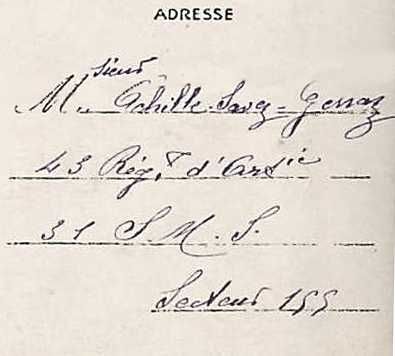 ADRESSE
Monsieur Achille
43 Régt d'Artie
31 S. M. S.
Secteur 155